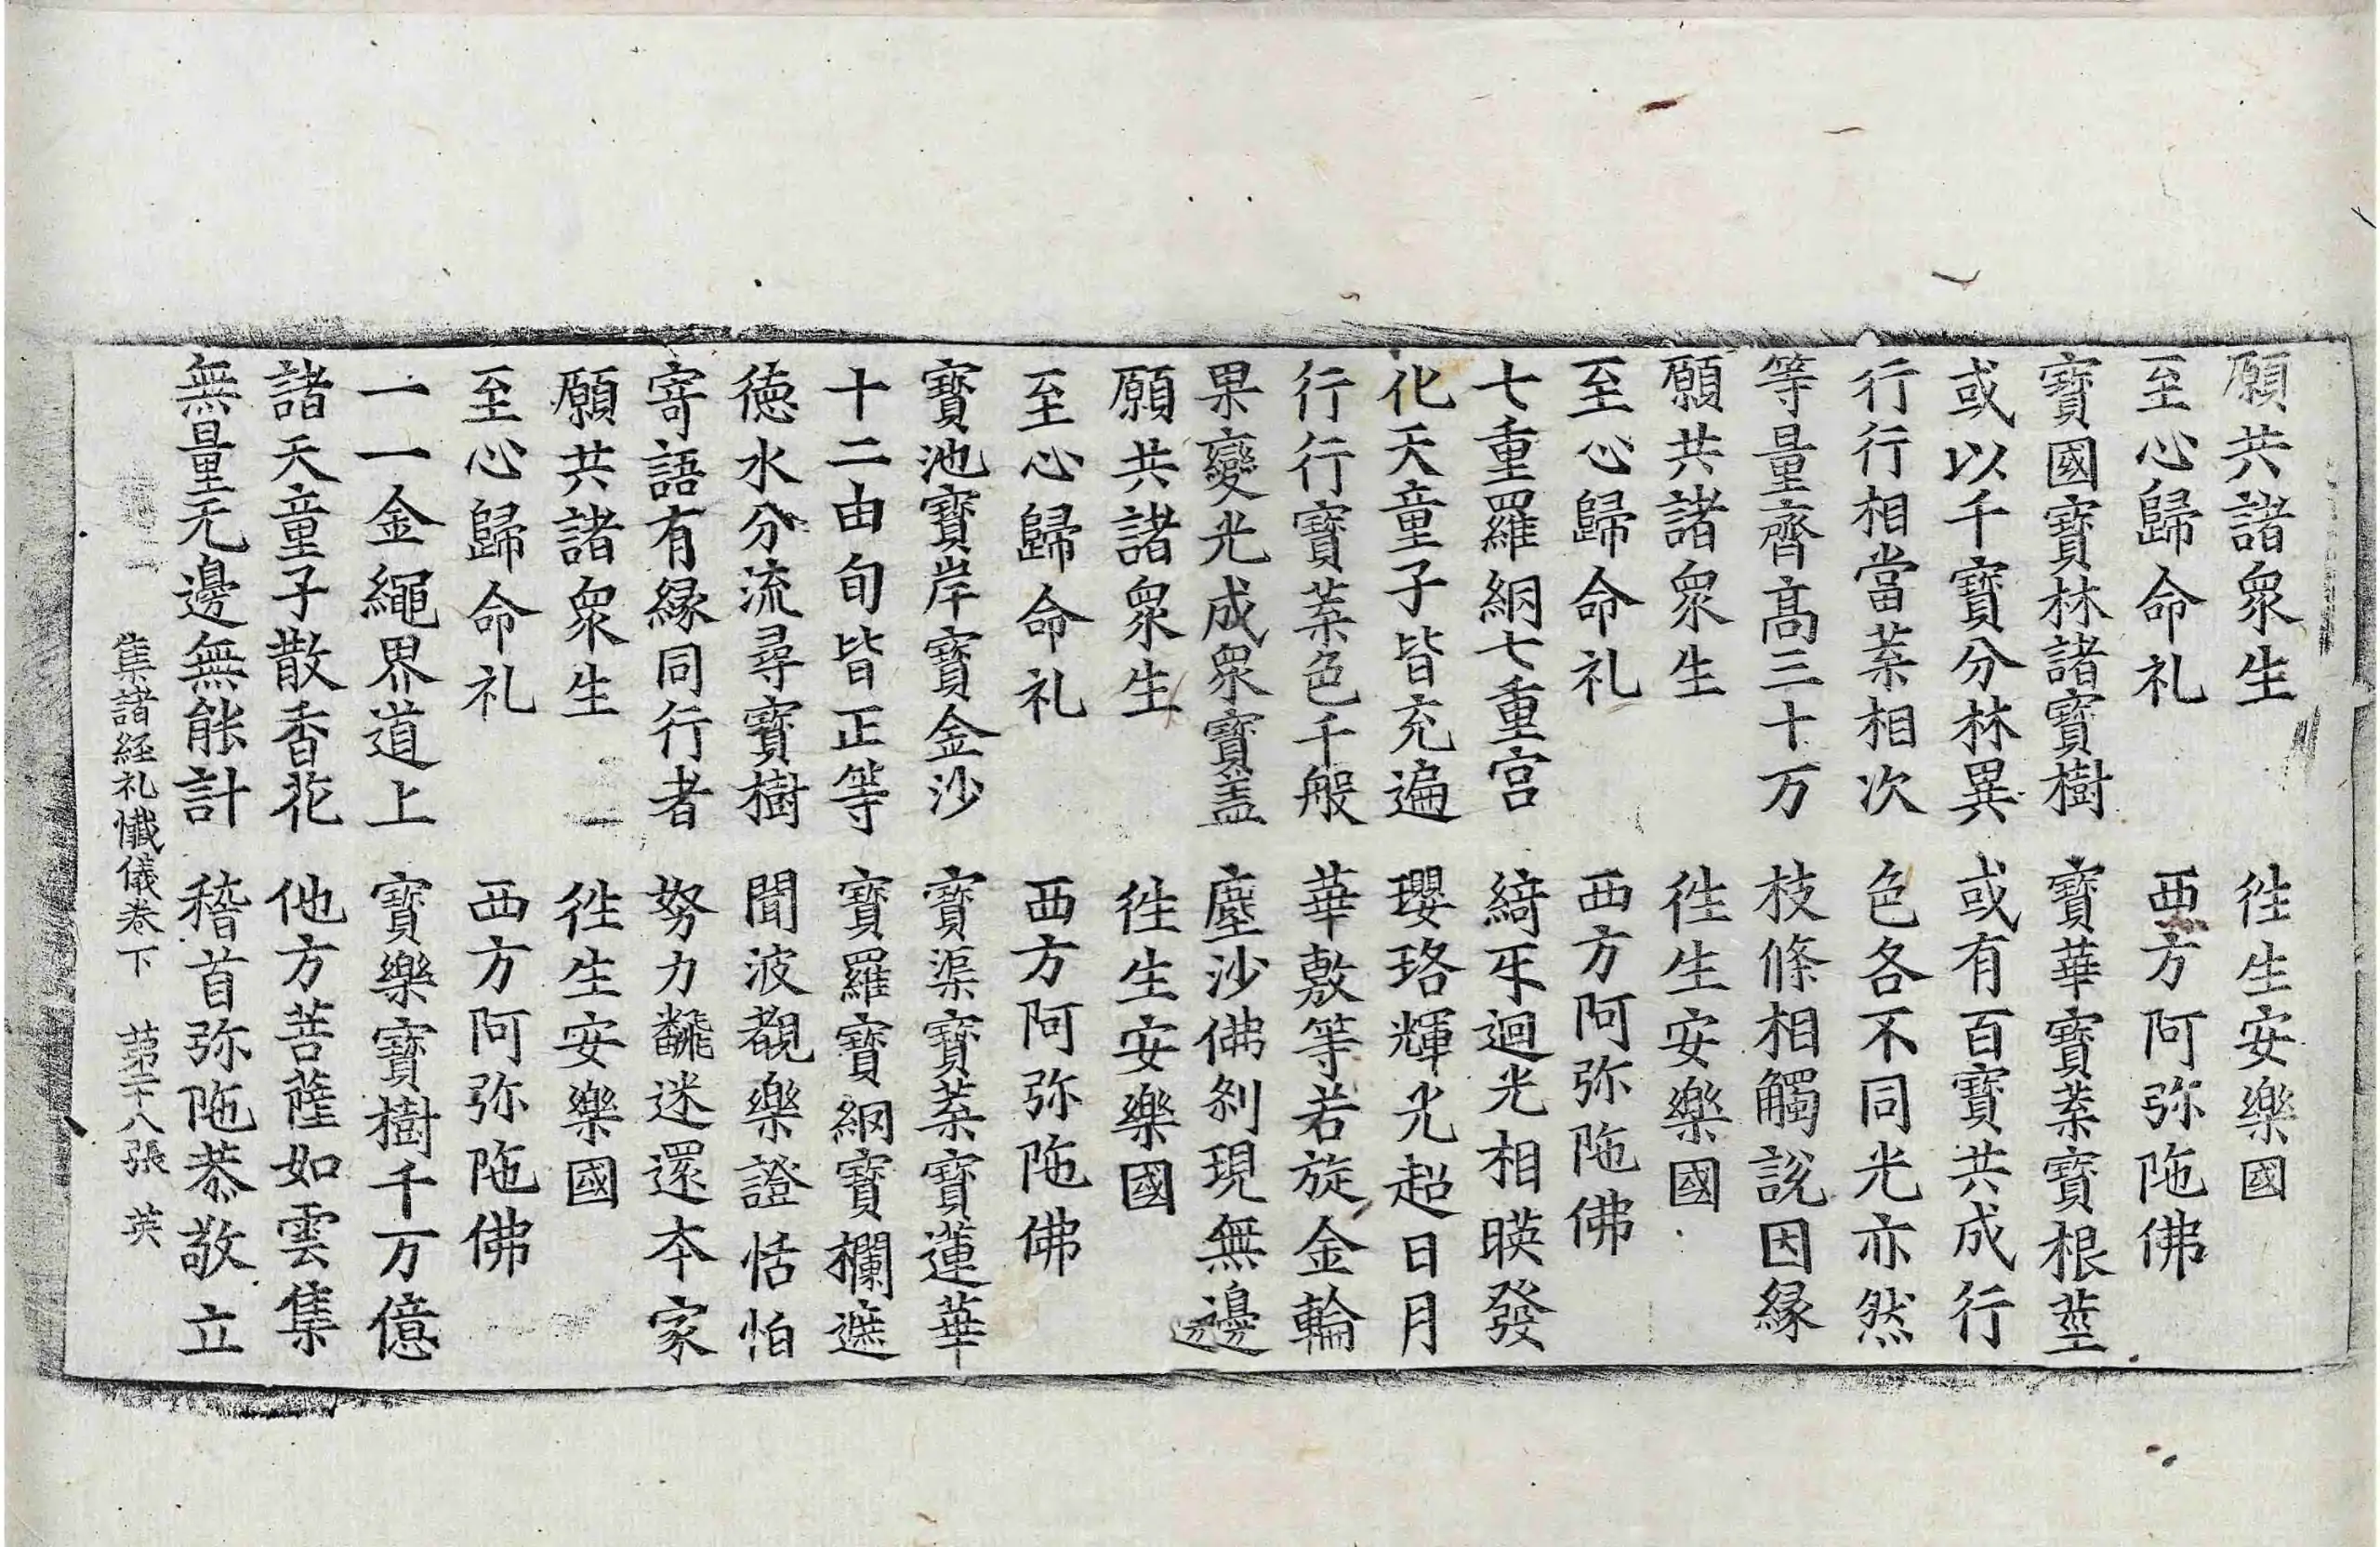 願共諸衆生　徃生安樂國
至心歸命礼　西方阿弥陁佛
寳國寳林諸寳樹　寳華寳葉寳根莖
或以千寳分林異　或有百寳共成行
行行相當葉相次　色各不同光亦然
等量齊髙三十万　枝條相觸說因縁
願共諸衆生　徃生安樂國
至心歸命礼　西方阿弥陁佛
七重羅網七重宫　綺㸦迴光相暎發
化天童子皆充遍　瓔珞輝光超日月
行行寳葉色千般　華敷等若旋金輪
果變光成衆寳盖　塵沙佛刹現無邊
願共諸衆生　徃生安樂國
至心歸命礼　西方阿弥陁佛
寳池寳岸寳金沙　寳渠寳葉寳蓮華
十二由旬皆正等　寳羅寳網寳欄遮
徳水分流尋寳樹　聞波覩樂證恬怕
寄語有縁同行者　努力飜迷還夲家
願共諸衆生　徃生安樂國
至心歸命礼　西方阿弥陁佛
一一金繩界道上　寳樂寳樹千万億
諸天童子散香花　他方菩薩如雲集
無量无邊無能計　稽首弥陁恭敬立
集諸経礼懺儀卷下　苐二十八張　英